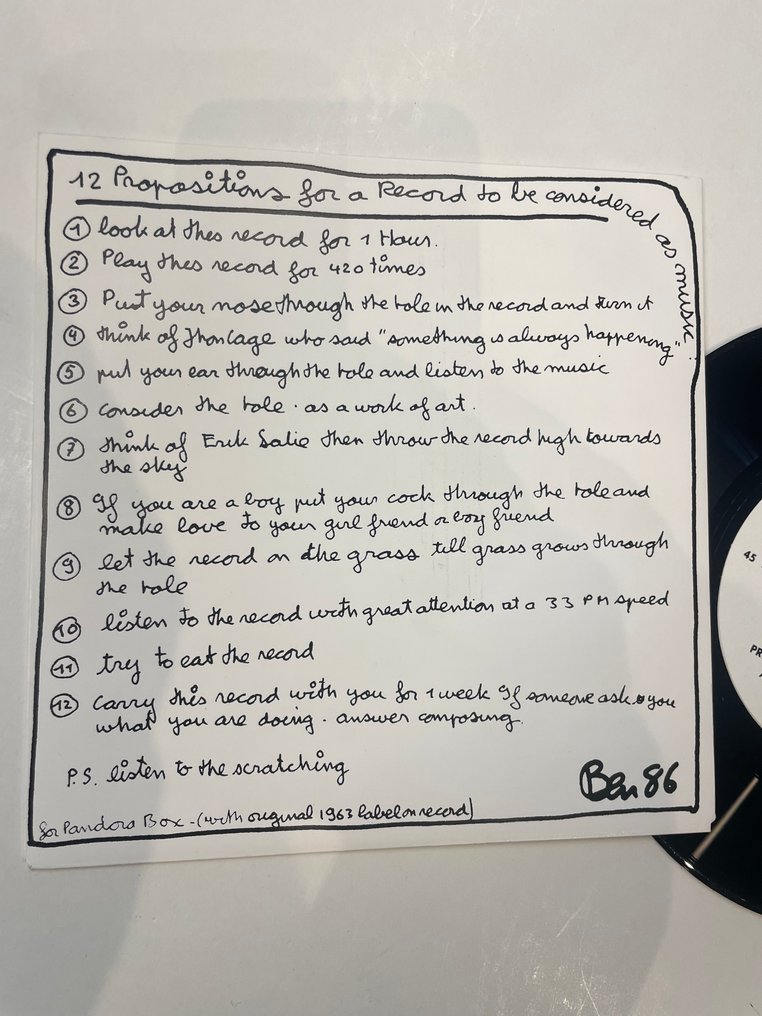 12 Propositions for a Record to be considered as music.
① look at thes record for 1 Hour.
② Play thes record for 420 times
③ Put your nose through the role in the record and turn it
④ think of Jhon Cage who said "something is always happening"
⑤ put your ear through the role and listen to the music
⑥ consider the role . as a work of art .
⑦ think of Erik Satie then throw the record high towards
the sky
⑧ If you are a boy put your cock through the role and
make love to your girl friend or boy friend
⑨ let the record on the grass till grass grows through
the role
⑩ listen to the record with great attention at a 33 PM speed
⑪ try to eat the record
⑫ carry this record with you for 1 week If someone ask you
what you are doing . answer composing.
P.S. listen to the scratching
Ben 86
for Pandora Box - (with original 1963 label on record)
45
PR